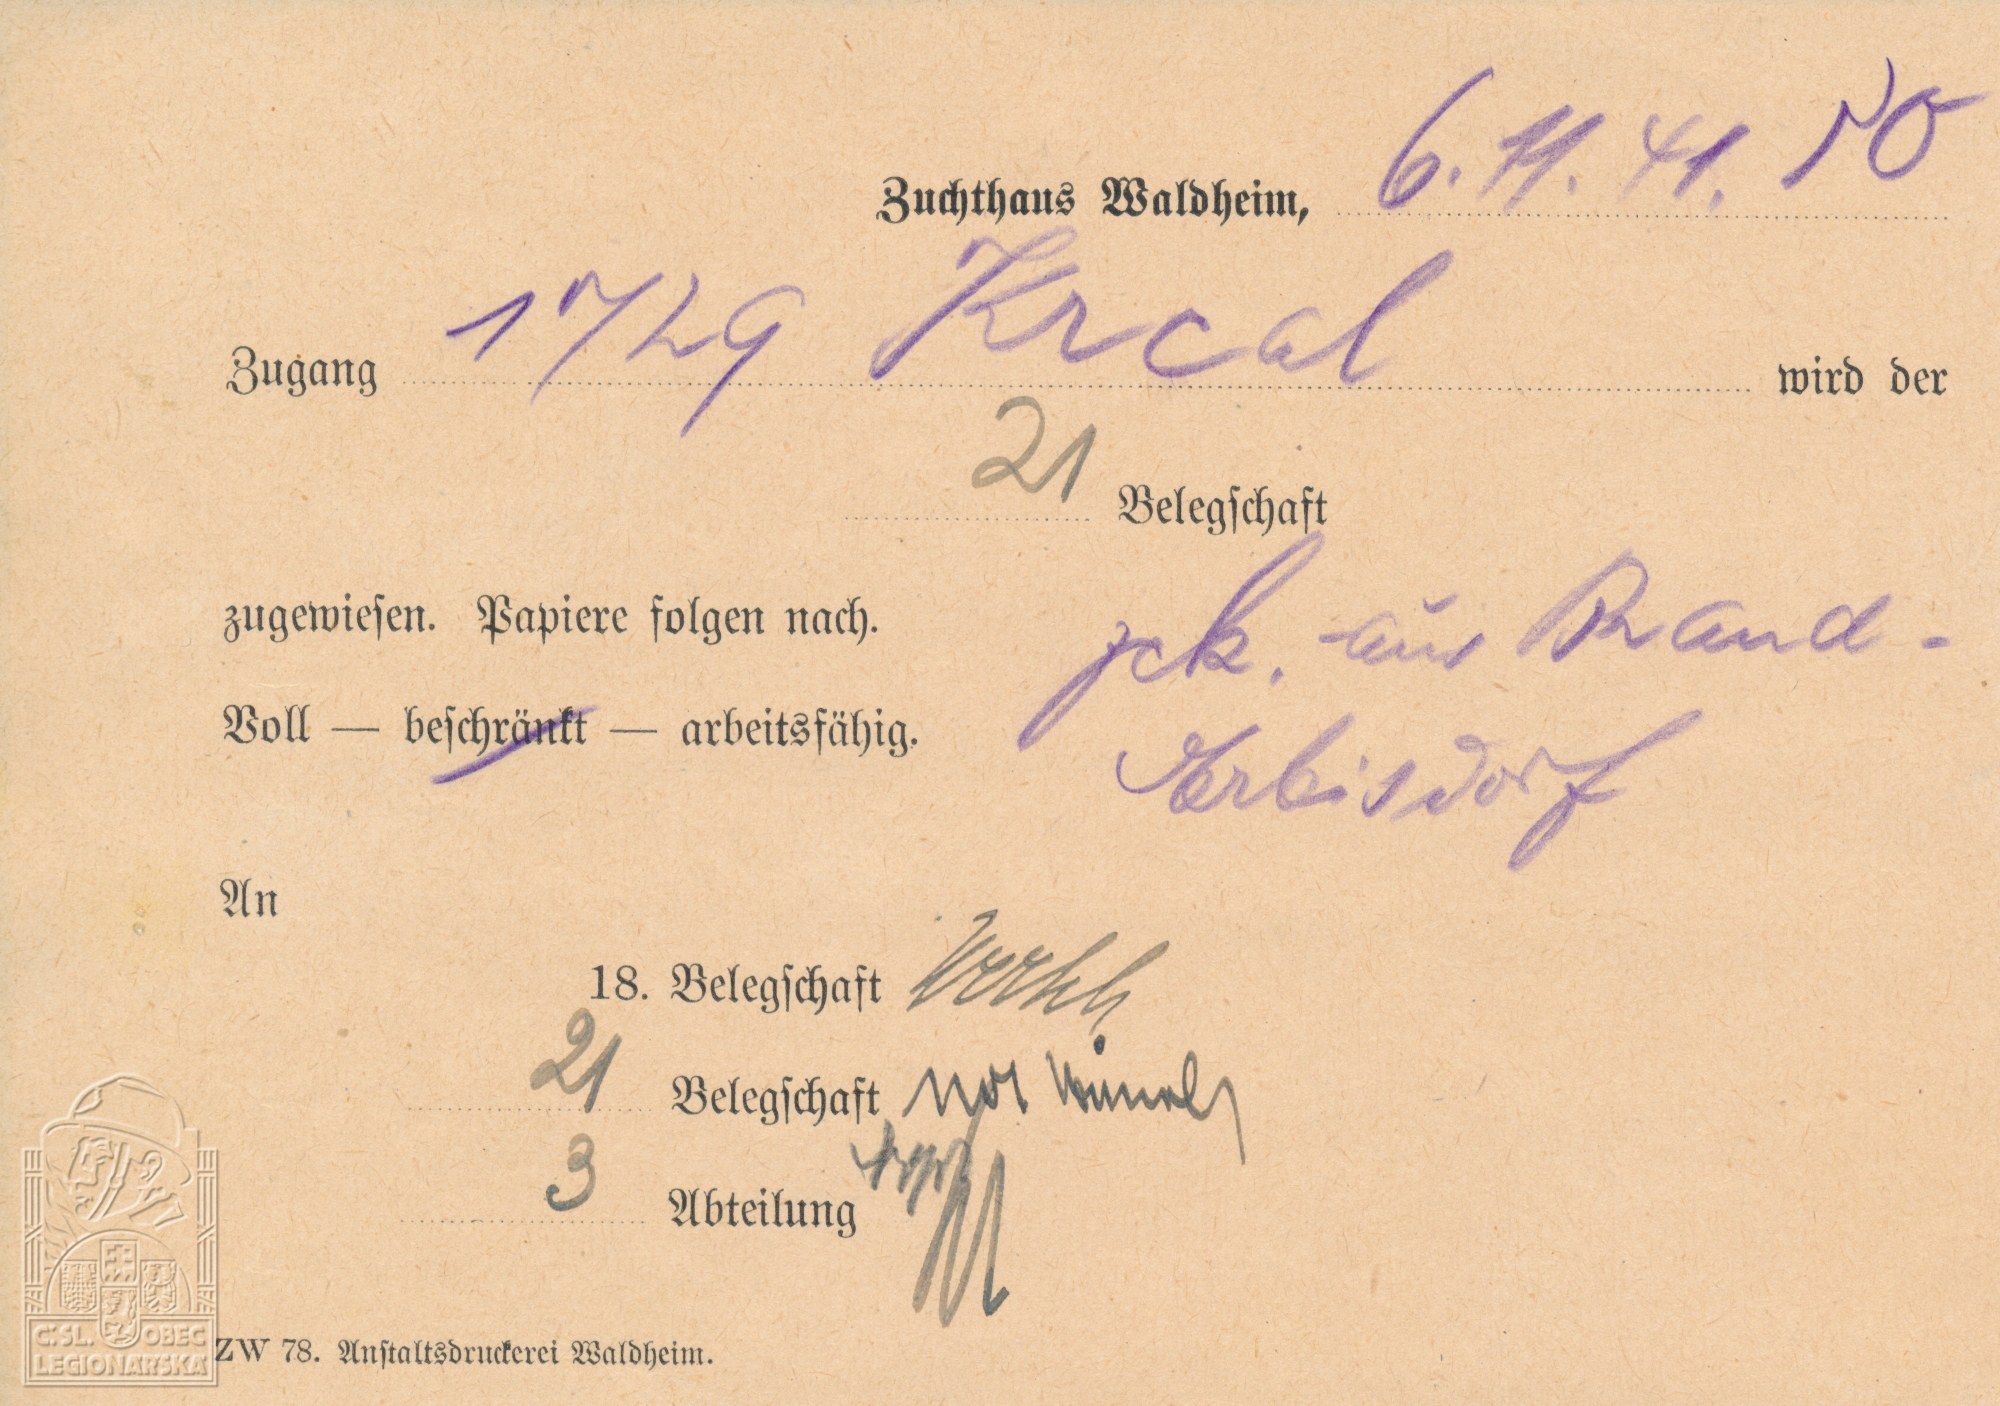 Zuchthaus Waldheim, 6. 11. 41.
Zugang 1729 Krcal wird der
21 Belegschaft
zugewiesen. Papiere folgen nach.
zck. aus Brand-
Voll — beschränkt — arbeitsfähig.
Erbisdorf
An
18. Belegschaft
21 Belegschaft
3 Abteilung
ZW 78. Anstaltsdruckerei Waldheim.
Č.SL. OBEC
LEGIONÁŘSKÁ